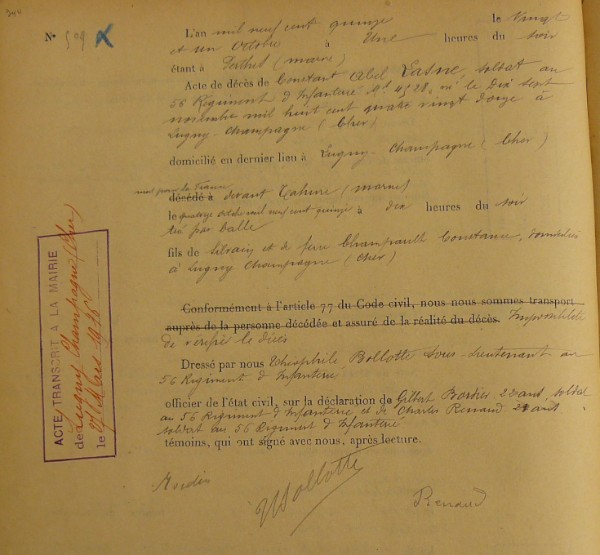 N° 509
L'an mil neuf cent quinze le Vingt
et un Octobre à Une heures du soir
étant à (Marne)
Acte de décès de Constant Abel Vasne soldat au
56 Régiment d'Infanterie M 4528, né le Dix sept
novembre mil huit cent quatre vingt douze à
Lugny-Champagne (Cher)
domicilié en dernier lieu à Lugny-Champagne (Cher)
mort pour la France
décédé à devant Tahure (Marne)
le quatorze octobre mil neuf cent quinze à dix heures du soir
tué par balle
fils de et de Champault Constance, domiciliés
à Lugny Champagne (Cher)
Conformément à l'article 77 du Code civil, nous nous sommes transport
auprès de la personne décédée et assuré de la réalité du décès. Impossibilité
de vérifié le décès
Dressé par nous Théophile Bollotte Sous-Lieutenant au
56 Régiment d'Infanterie
officier de l'état civil, sur la déclaration de Gilbert Bordier 22 ans, soldat
au 56 Régiment d'Infanterie et de Charles Renaud 24 ans
soldat au 56 Régiment d'Infanterie
témoins, qui ont signé avec nous, après lecture.
Bordier Bollotte Renaud
ACTE TRANSCRIT A LA MAIRIE
de Lugny Champagne (Cher)
le 27 1915